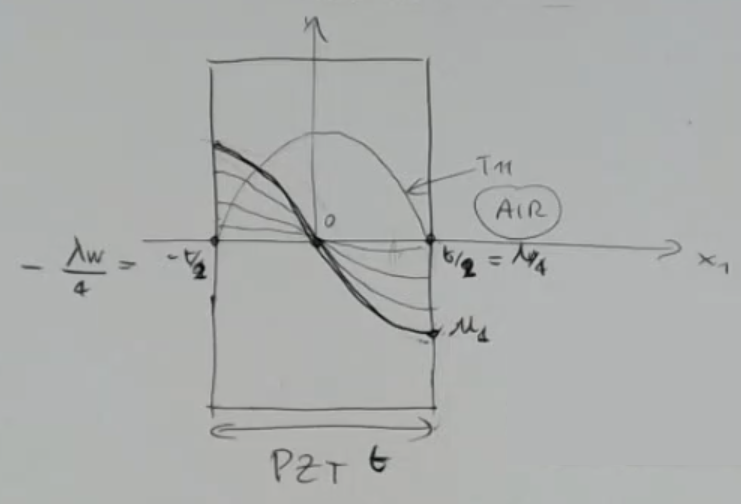 T11
AIR
0
- λw/4 = -t/2
t/2 = λw/4
x₁
u₁
PZT t